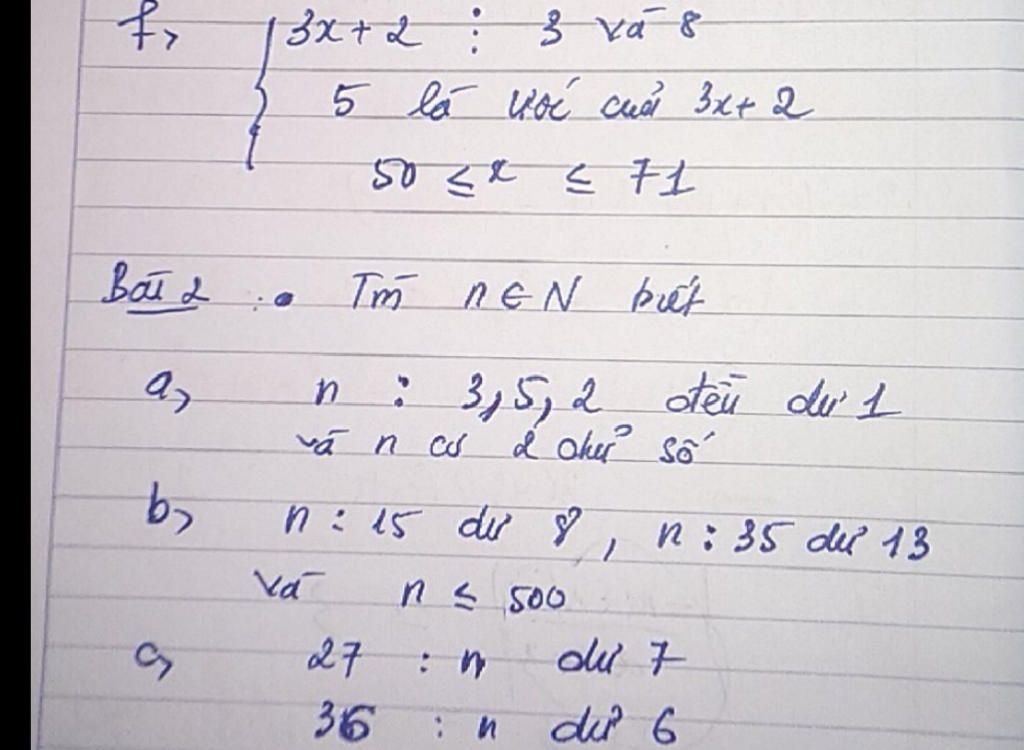 f, 3x + 2 ⋮ 3 và 8
5 là ước của 3x + 2
50 ≤ x ≤ 71
Bài 2 : • Tìm n ∈ N biết
a, n : 3, 5, 2 đều dư 1
và n có 2 chữ số
b, n : 15 dư 8, n : 35 dư 13
và n ≤ 500
c, 27 : n dư 7
36 : n dư 6